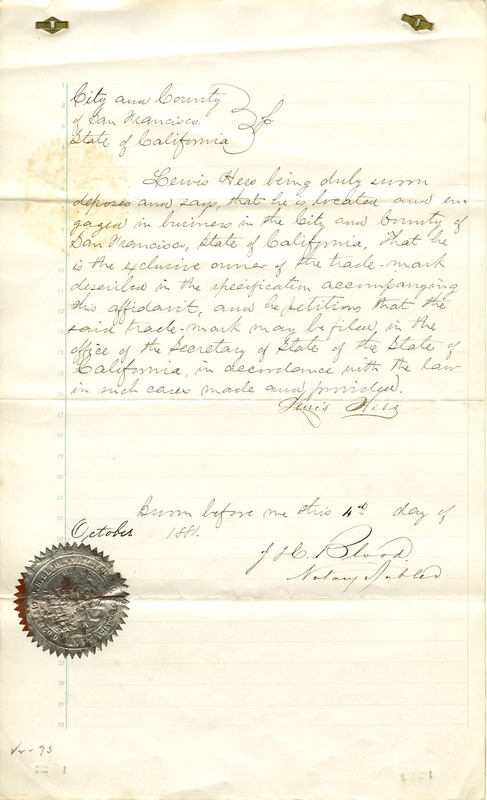 City and County
of San Francisco
State of California
Lewis Hess being duly sworn
deposes and says, that he is located and en-
gaged in business in the City and County of
San Francisco, State of California, That he
is the exclusive owner of the trade-mark
described in the specification accompanying
this affidavit, and he petitions that the
said trade-mark may be filed in the
office of the Secretary of State of the State of
California, in accordance with the law
in such cases made and provided.
Lewis Hess
Sworn before me this 4th day of
October 1881.
J H Blood
Notary Public